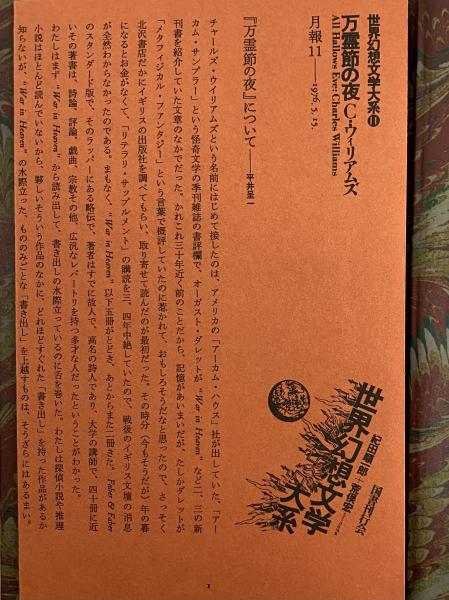 世界幻想文学大系⓫
万霊節の夜 C・ウィリアムズ
All Hallows Eve: Charles Williams
月報11——1976. 5. 15.
国書刊行会
紀田順一郎
荒俣宏
世界幻想文学大系
『万霊節の夜』について——平井呈一
チャールズ・ウイリアムズという名前にはじめて接したのは、アメリカの「アーカム・ハウス」社が出していた、「アー
カム・サンプラー」という怪奇文学の季刊雑誌の書評欄で、オーガスト・ダレットが“War in Heaven”など二、三の新
刊書を紹介していた文章のなかでだった。かれこれ三十年近く前のことだから、記憶があいまいだが、たしかダレットが
「メタフィジカル・ファンタジー」という言葉で概評していたのに惹かれて、おもしろそうだなと思ったので、さっそく
北沢書店だかにイギリスの出版社を調べてもらい、取り寄せて読んだのが最初だった。その時分(今もそうだが)年の暮
になるとお金がなくて、「リテラリ・サップルメント」の購読を三、四年中絶していたので、戦後のイギリス文壇の消息
が全然わからなかったのである。まもなく、“War in Heaven”以下五冊がとどき、あとからまた二冊きた。Faber & Faber
のスタンダード版で、そのラッパーにある略伝で、著者はすでに故人で、高名の詩人であり、大学の講師で、四十冊に近
いその著書は、詩論、評論、戯曲、宗教その他、広汎なレパートリを持つ多才な人だったということがわかった。
わたしはまず、“War in Heaven”から読み出して、書き出しの水際立っているのに舌を巻いた。わたしは探偵小説や推理
小説はほとんど読んでいないから、夥しいそういう作品のなかに、どれほどすぐれた「書き出し」を持った作品があるか
知らないが、“War in Heaven”の水際立った、もののみごとな「書き出し」を上越すものは、そうざらにはあるまい。
1